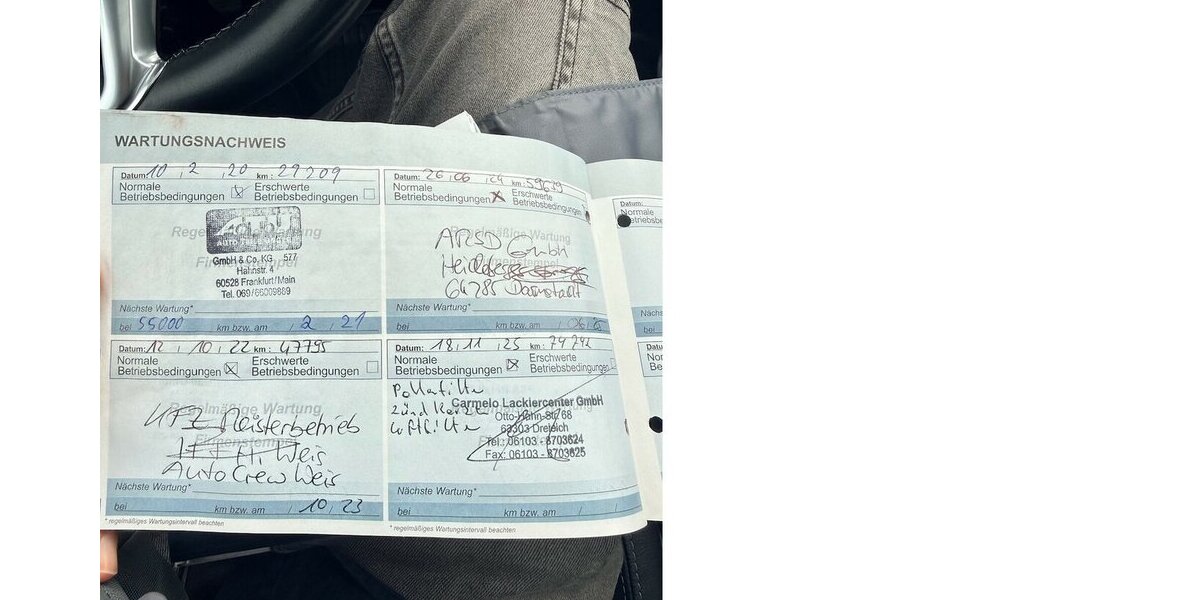 WARTUNGSNACHWEIS
Datum: 10 , 2 , 20 km: 29209
Normale Betriebsbedingungen
Erschwerte Betriebsbedingungen
Regelmäßige Wartung
Firmenstempel
AUTO TEILE
GmbH & Co. KG 577
Hahnstr. 4
60528 Frankfurt/Main
Tel. 069/66009889
Nächste Wartung*
bei 55000 km bzw. am / 2 / 21
Datum: 26 , 06 , 24 km: 59679
Normale Betriebsbedingungen
Erschwerte Betriebsbedingungen
Regelmäßige Wartung
Firmenstempel
ARSD GmbH
64285 Darmstadt
Nächste Wartung*
bei km bzw. am / 06 / 25
Datum: 12 , 10 , 22 km: 47795
Normale Betriebsbedingungen
Erschwerte Betriebsbedingungen
Regelmäßige Wartung
Firmenstempel
KFZ Meisterbetrieb
H. Weis
AutoCrew Weis
Nächste Wartung*
bei km bzw. am / 10 / 23
* regelmäßiges Wartungsintervall beachten
Datum: 18 , 11 , 25 km: 74742
Normale Betriebsbedingungen
Erschwerte Betriebsbedingungen
Pollenfilter
Zündkerze
Luftfilter
Carmelo Lackiercenter GmbH
Otto-Hahn-Str. 68
63303 Dreieich
Tel.: 06103 - 8703624
Fax: 06103 - 8703625
Nächste Wartung*
bei km bzw. am / /
* regelmäßiges Wartungsintervall beachten
Datum:
Normale
bei